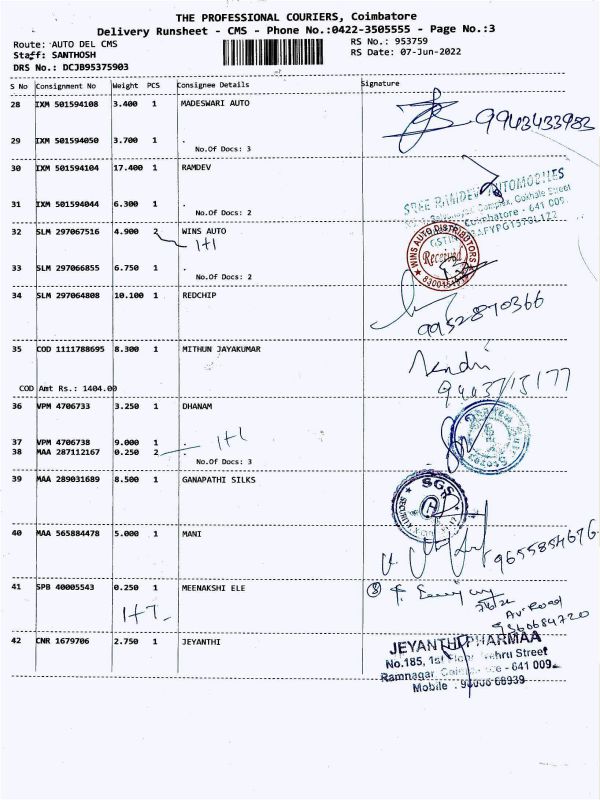 THE PROFESSIONAL COURIERS, Coimbatore
Delivery Runsheet - CMS - Phone No.:0422-3505555 - Page No.:3
Route: AUTO DEL CMS RS No.: 953759
Staff: SANTHOSH RS Date: 07-Jun-2022
DRS No.: DCJB95375903
S No Consignment No Weight PCS Consignee Details Signature
28 IXM 501594108 3.400 1 MADESWARI AUTO
9943433983
29 IXM 501594050 3.700 1 .
No.Of Docs: 3
30 IXM 501594104 17.400 1 RAMDEV
SREE RAMDEV AUTOMOBILES
Complex, Gokhale Street
Coimbatore - 641 009.
31 IXM 501594044 6.300 1 .
No.Of Docs: 2
32 SLM 297067516 4.900 2 WINS AUTO
1+1
WINS AUTO DISTRIBUTORS
Received
33 SLM 297066855 6.750 1 .
No.Of Docs: 2
34 SLM 297064808 10.100 1 REDCHIP
9952870366
35 COD 1111788695 8.300 1 MITHUN JAYAKUMAR
COD Amt Rs.: 1404.00
36 VPM 4706733 3.250 1 DHANAM
37 VPM 4706738 9.000 1 .
1+1
38 MAA 287112167 0.250 2 .
No.Of Docs: 3
39 MAA 289031689 8.500 1 GANAPATHI SILKS
SGS
40 MAA 565884478 5.000 1 MANI
9655854676
41 SPB 40005543 0.250 1 MEENAKSHI ELE
Av. Road
9360684720
42 CNR 1679706 2.750 1 JEYANTHI
JEYANTHI PHARMAA
No.185, 1st Floor Nehru Street
Ramnagar, Coimbatore - 641 009.
Mobile :